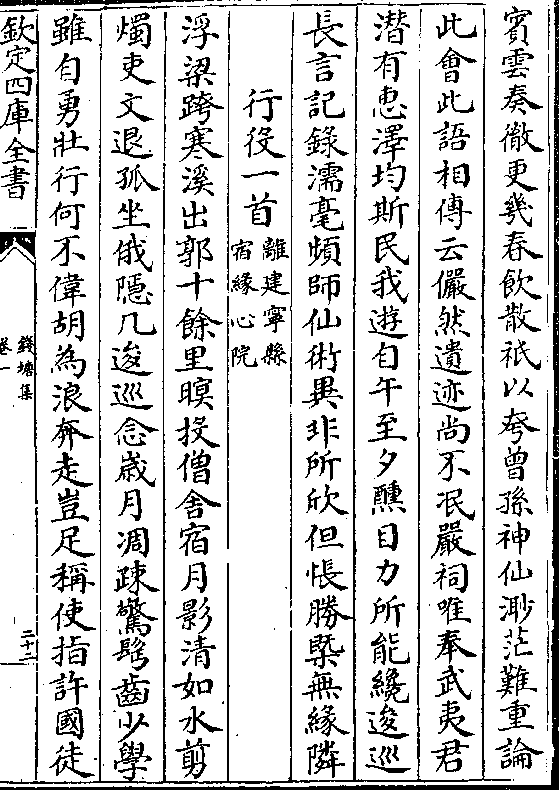 賓雲奏徹更幾春飲散祇以夸曾孫神仙渺茫難重論
此會此語相傳云儼然遺迹尚不泯嚴祠唯奉武夷君
潛有惠澤均斯民我遊自午至夕醺目力所能纔逡巡
長言記錄濡毫頻師仙術異非所欣但悵勝槩無緣隣
行役一首離建寧縣
宿緣心院
浮梁跨寒溪出郭十餘里暝投僧舍宿月影清如水剪
燭吏文退孤坐俄隱几逡巡念歳月凋疎驚髩齒少學
雖自勇壯行何不偉胡為浪奔走豈足稱使指許國徒
欽定四庫全書
錢塘集
卷一
二十二